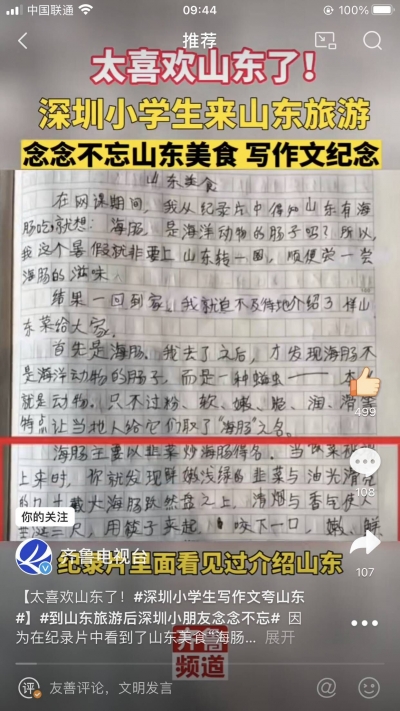 中国联通
09:44
100%
推荐
太喜欢山东了！
深圳小学生来山东旅游
念念不忘山东美食 写作文纪念
山东美食
在网课期间，我从纪录片中得知山东有海
肠吃，就想：海肠，是海洋动物的肠子吗？所以，
我这个暑假就非要上山东转一圈，顺便尝一尝
海肠的滋味。
结果一回到家，我就迫不及待地介绍3样山
东菜给大家。
首先是海肠。我去了之后，才发现海肠不
是海洋动物的肠子，而是一种蛐虫——本
就是动物，只不过粉、软、嫩、脆、润、滑等
特点让当地人给它们取了“海肠”之名。
海肠主要以韭菜炒海肠得名。当
上来时，你就发现鲜嫩浅绿的韭菜与油光滑亮
大海肠跃然盘之上，清烟与香气使人
三尺，用筷子夹起，咬下一口，嫩、鲜
499
108
107
你的关注
齐鲁电视台
纪录片里面看见过介绍山东
【太喜欢山东了！#深圳小学生写作文夸山东
#】#到山东旅游后深圳小朋友念念不忘# 因
为在纪录片中看到了山东美食“海肠... 展开
齐鲁
频道
评 友善评论，文明发言